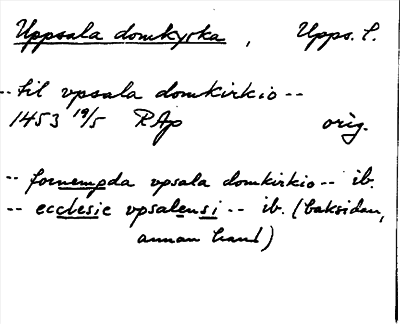 Uppsala domkyrka, Upps. l.
-- til vpsala domkirkio --
1453 19/5 RAp orig.
-- fornempda vpsala domkirkio -- ib.
-- ecclesie vpsalensi -- ib. (baksidan,
annan hand)